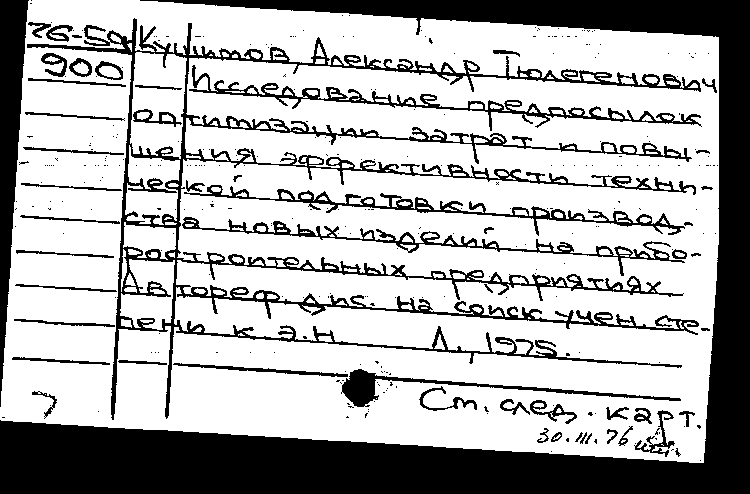 76-5а Кушитов, Александр Тюлегенович
900 Исследование предпосылок
оптимизации затрат и повы-
шения эффективности техни-
ческой подготовки производ-
ства новых изделий на прибо-
ростроительных предприятиях.
Автореф. дис. на соиск. учен. сте-
пени к.э.н. Л., 1975.
См. след. карт.
30.III.76